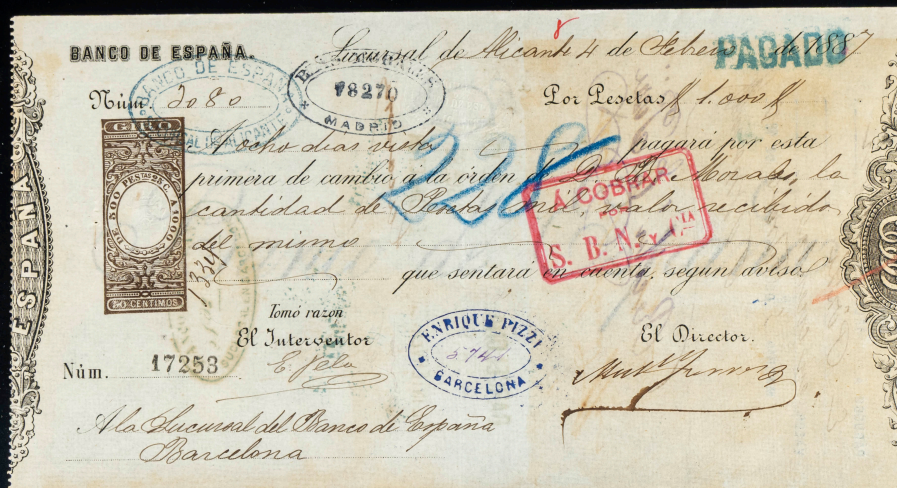 BANCO DE ESPAÑA.
Sucursal de Alicante 4 de Febrero de 1887
PAGADO
BANCO DE ESPAÑA
SUCURSAL DE ALICANTE
18270
MADRID
Núm 2080
Por Pesetas # 1.000 #
GIRO
DE 500 PESTAS 05 C. A 1000
50 CENTIMOS
A ocho dias vista pagará por esta
primera de cambio á la órden de Morales, la
cantidad de Pesetas mil, valor recibido
del mismo
que sentará en cuenta, segun aviso
228
A COBRAR
POR
S. B. N. Y CIA
1334
Tomó razon
El Interventor
El Director.
ENRIQUE PIZZI
5741
BARCELONA
Núm. 17253
A la Sucursal del Banco de España
Barcelona
ESPAÑA